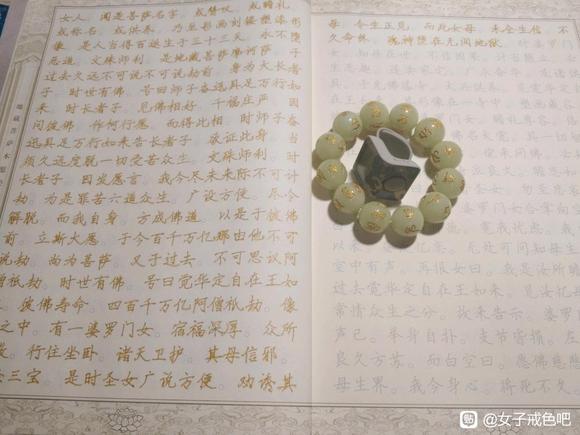 女人。闻是菩萨名字。或赞叹。或瞻礼。
或称名。或供养。乃至彩画刻镂塑漆形
像。是人当得百返生于三十三天。永不堕
恶道。文殊师利。是地藏菩萨摩诃萨。于
过去久远不可说不可说劫前。身为大长者
子。时世有佛。号曰师子奋迅具足万行如
来。时长者子。见佛相好。千福庄严。因
问彼佛。作何行愿。而得此相。时师子奋
迅具足万行如来告长者子。欲证此身。当
须久远度脱一切受苦众生。文殊师利。时
长者子。因发愿言。我今尽未来际不可计
劫。为是罪苦六道众生。广设方便。尽令
解脱。而我自身。方成佛道。以是于彼佛
前。立斯大愿。于今百千万亿那由他不可
说劫。尚为菩萨。又于过去。不可思议阿
僧祇劫。时世有佛。号曰觉华定自在王如
彼佛寿命。四百千万亿阿僧祇劫。像
之中。有一婆罗门女。宿福深厚。众所
行住坐卧。诸天卫护。其母信邪。
三宝。是时圣女广说方便。劝诱其
母。令生正见。而此女母。未全生信。不
久命终。魂神堕在无间地狱。时婆罗门
空中有声。再报女曰。我是汝所
过去觉华定自在王如来。见汝忆
常情众生之分。故来告示。婆罗
声已。举身自扑。支节皆损。左
良久方苏。而白空曰。愿佛慈愍
母生界。我今身心。将死不久
地藏菩萨本愿经
贴 @女子戒色吧